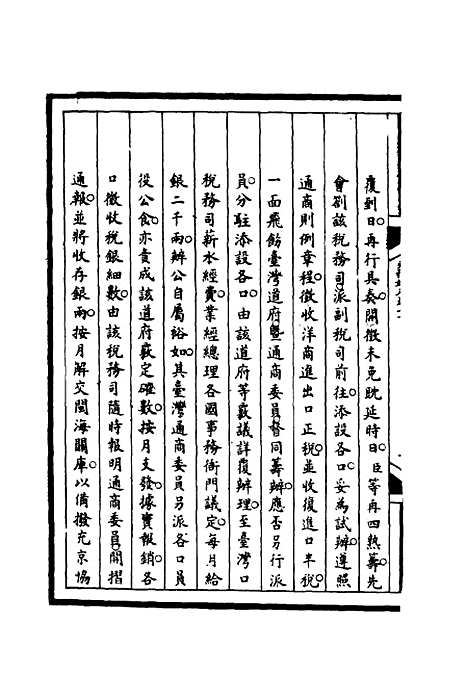 覆到日。再行具奏。開徵未免耽延時日。臣等再四熟籌。先
會劄該稅務司。派副稅司前往添設各口。妥為試辦。遵照
通商則例章程。徵收洋商進出口正稅。並收復進口半稅。
一面飛飭臺灣道府暨通商委員督同籌辦。應否另行派
員。分駐添設各口。由該道府等嚴議詳覆辦理。至臺灣口
稅務司薪水經費。業經總理各國事務衙門議定。每月給
銀二千兩。辦公自屬裕如。其臺灣通商委員另派各口員
役公食。亦責成該道府嚴定確數。按月支發。據實報銷。各
口徵收稅銀細數。由該稅務司隨時報明通商委員。開摺
通報。並將收存銀兩。按月解交閩海關庫。以備撥充京協